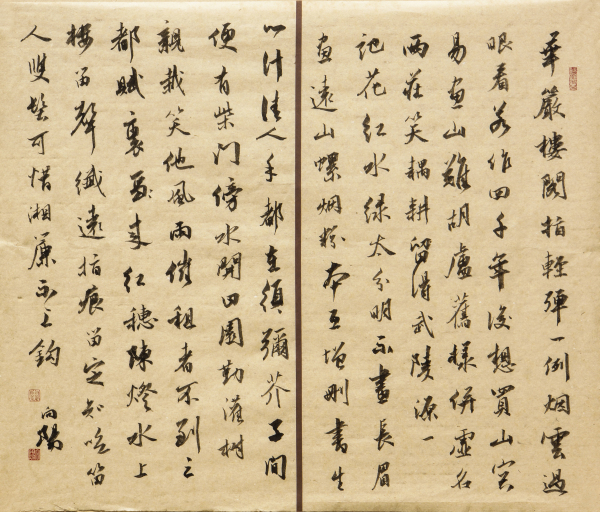 華嚴樓閣指輕彈一例烟雲過
眼看若作四千年後想買山突
易畫山難胡盧舊樣併虛名
兩莊笑耦耕留得武陵源一
記花紅水綠太分明不畫長眉
畫遠山螺烟粉本互增刪書生
心計佳人手都在須彌芥子間
便有柴門傍水開田園勤灌樹
親栽笑他風雨催租者不到三
都賦裏來紅穗陳燈水上
樓笛聲纖遠指痕留定知吹笛
人雙鬢可惜湘簾不上鈎
向陽